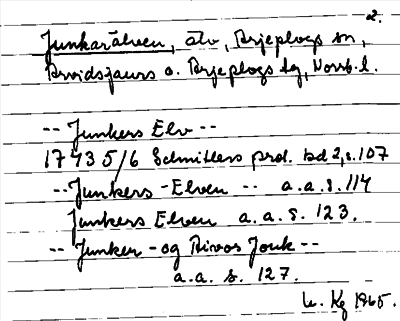 2.
Junkarälven, älv, Arjeplogs sn,
Arvidsjaurs o. Arjeplogs tg, Norrb. l.
-- Junkers Elv --
1743 5/6 Schnitlers prot. bd 2, s. 107
-- Junkers-Elven -- a.a. s. 114
Junkers Elven a.a. s. 123.
-- Junker- og Rivos Jouk --
a.a. s. 127.
Kg 1965.